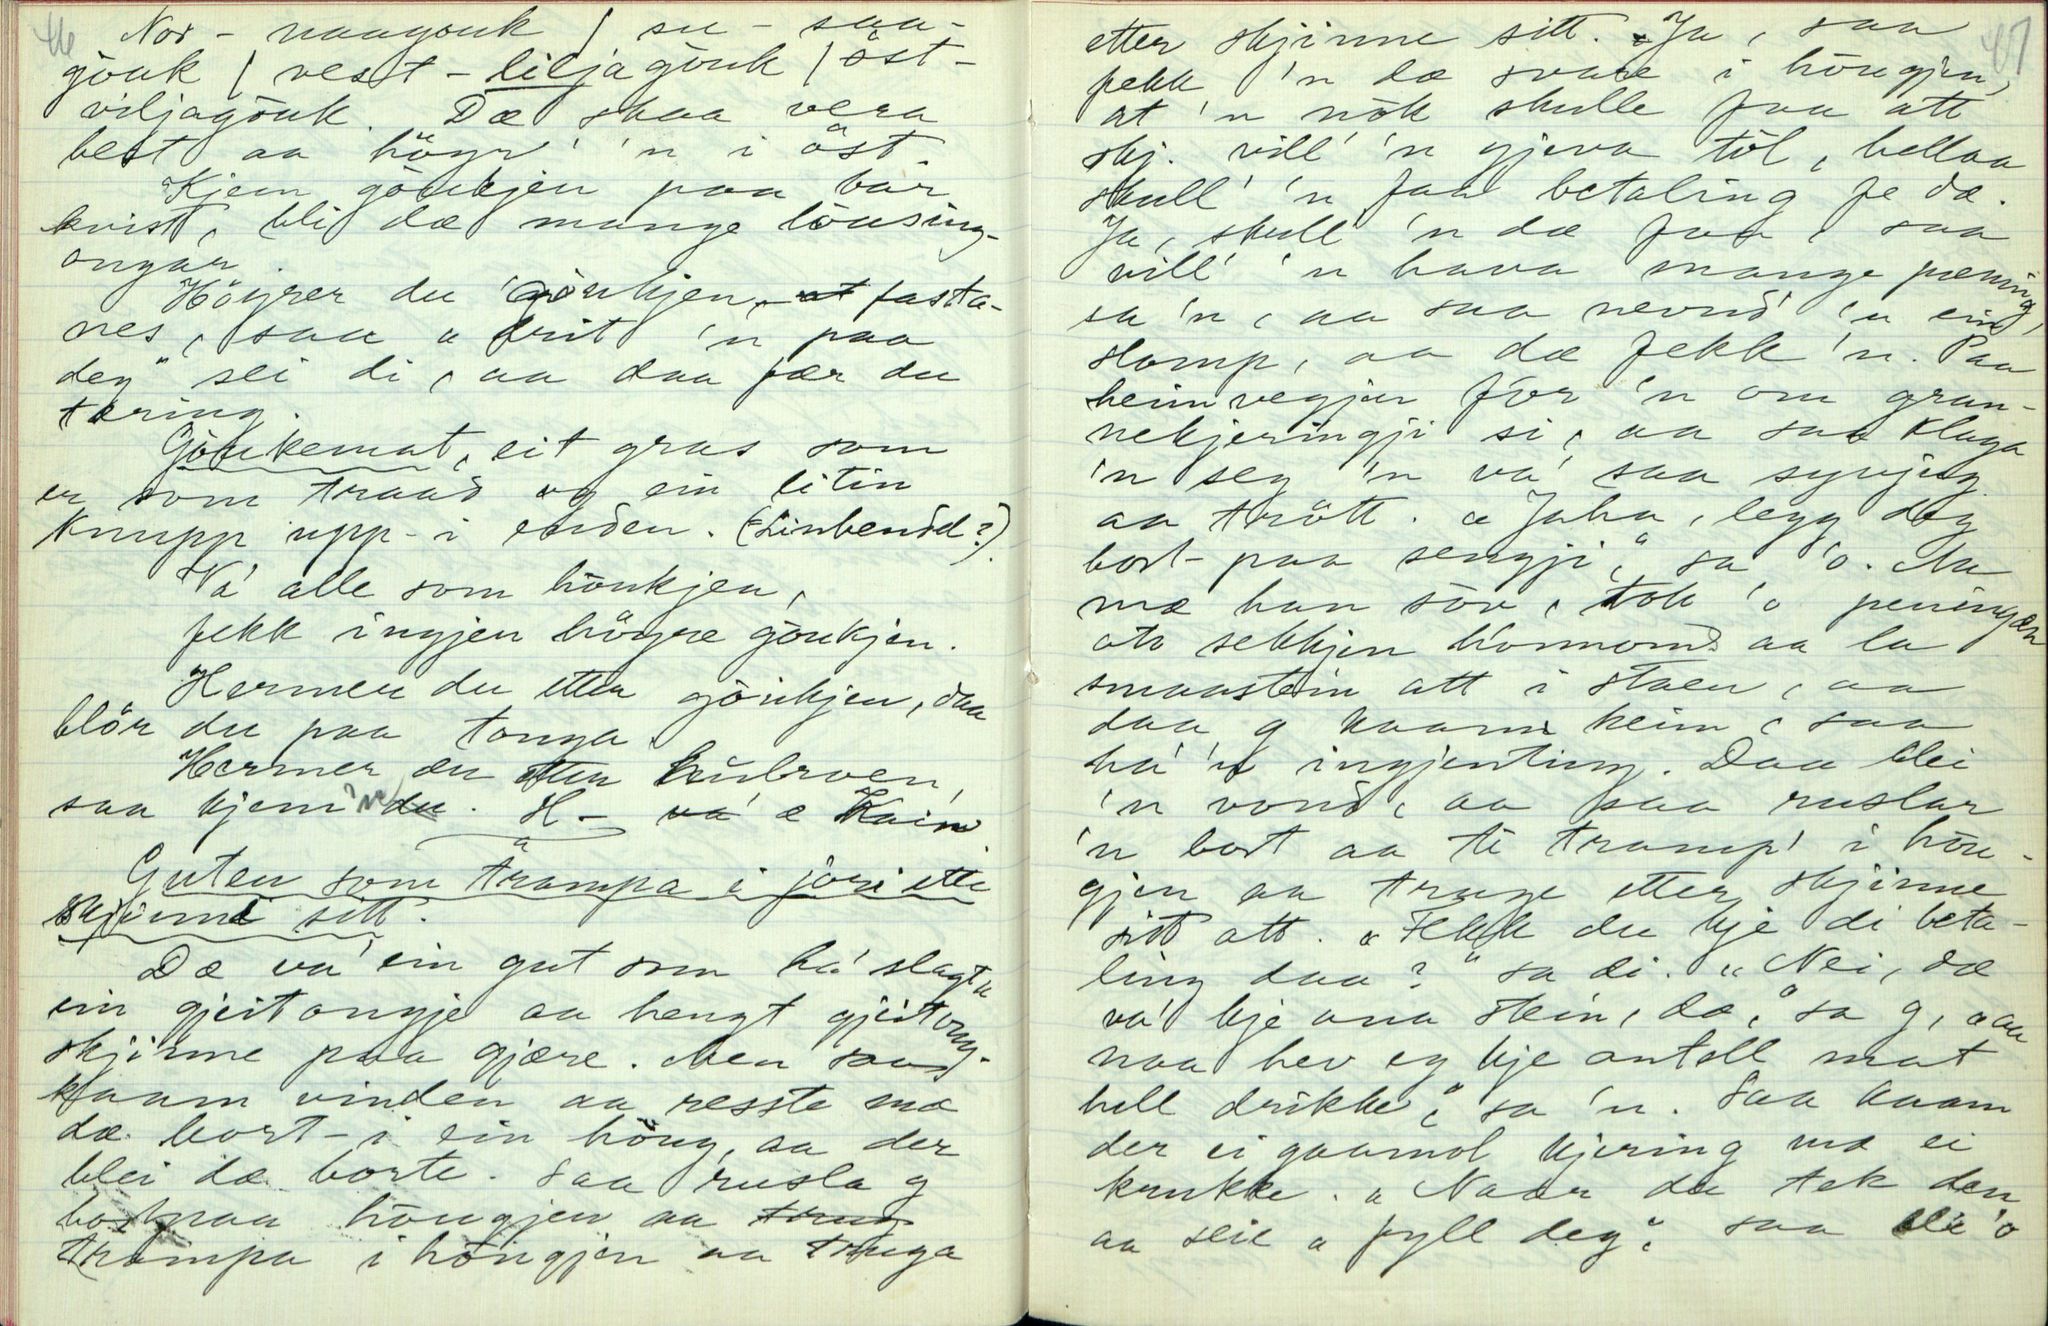 46
Nor - naagouk / su - saa-
gouk / vest - liljagouk / öst-
viljagouk. Dæ skaa vera
best aa höyr' 'n i öst.
Kjem göukjen paa bar
kvist, bli dæ mange löusing-
ongar.
Höyrer du göukjen, fasta-
nes, saa „drit 'n paa
deg" sei di, aa daa fær du
tæring.
Göukemat, eit gras som
er som traad og ein liten
knupp upp-i enden. (Linbendel?)
Va' alle som höukjen,
fekk ingjen höyre göukjen.
Hermer du etter göukjen, daa
blör du paa tonga.
Hermer du etter hubroen,
saa kjem 'n du. H - va' e Kain.
Guten som trampa i jöri etter
skjinne sitt.
Dæ va' ein gut som ha' slagta
ein gjeitongje aa hengt gjeitong-
skjinne paa gjære. Men saa
kaam vinden aa resste mæ
dæ bort-i ein höug, aa der
blei dæ borte. Saa rusla g
bortpaa höugjen aa trug
trampa i höugjen aa truga
47
etter skjinne sitt. Ja, saa
fekk 'n dæ svare i höugjen,
at 'n nök skulle faa att
skj. vill' 'n gjeva tol, hellaa
skull' 'n faa betaling fe dæ.
Ja, skull' 'n dæ faa, saa
vill' 'n hava mange pæning,
sa 'n, aa saa nevnd' 'n ein
slomp, aa dæ fekk 'n. Paa
heimvegjen för 'n om gran-
nekjeringji si, aa saa klaga
'n seg 'n va' saa syvjug
aa trött. „Jaha, legg deg
bort-paa sengji," sa 'o. Aa
mæ han söv, tok 'o peningæn
oto sekkjen honnoms aa la
smaastein att i staen, aa
daa g kaam heim, saa
ha' 'n ingjenting. Daa blei
'n vond, aa saa ruslar
'n bort aa te tramp' i höu-
gjen aa truge etter skjinne
sitt att. „Fekk du kje di beta-
ling daa?" sa di. „Nei, dæ
va' kje ana stein, dæ," sa g, „aa
naa hev eg kje antell mat
hell drikke," sa 'n. Saa kaam
der ei gaamol kjering mæ ei
krukke. „Naar du tek den
aa seie „fyll deg", saa bli 'o